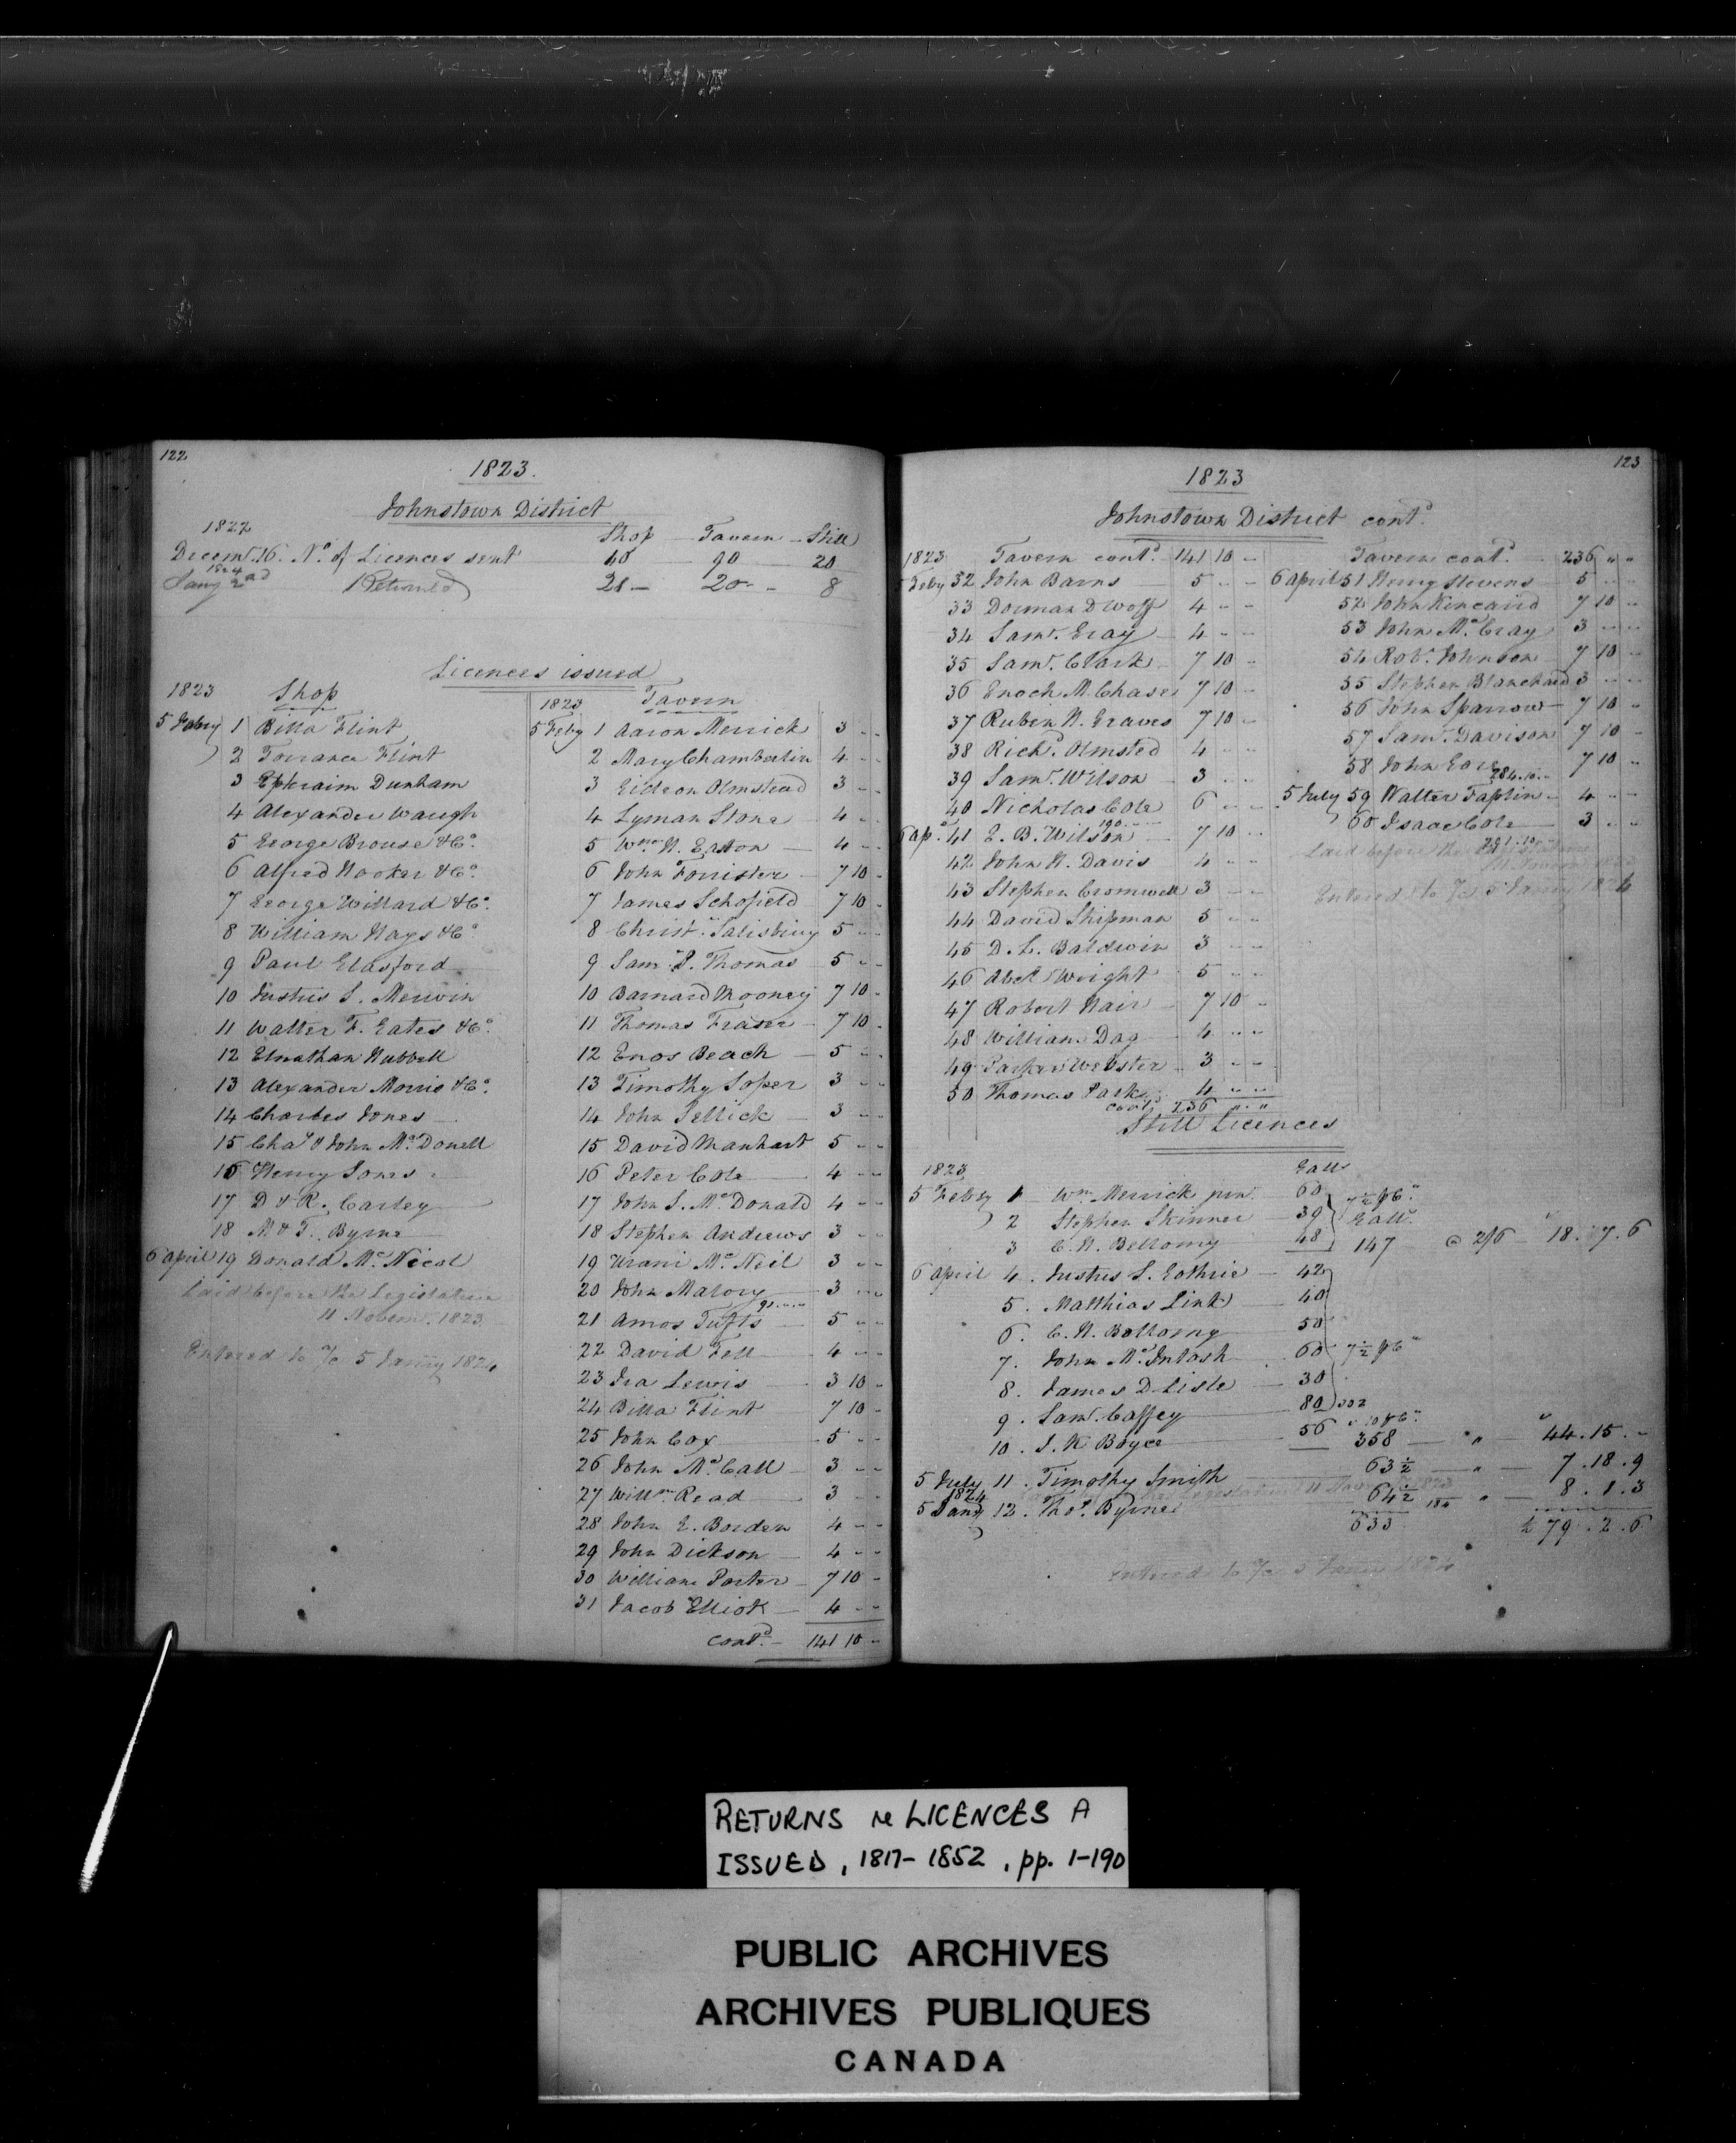 122
1823.
Johnstown District
1822 Shop Tavern Still
Decemr. 16. No. of Licences sent 40 90 20
1824
Jany 2nd Returned 21 20 8
Licences issued
1823 Shop
5 Feby 1 Billa Flint
2 Torrance Flint
3 Ephraim Dunham
4 Alexander Waugh
5 George Brouse & Co.
6 Alfred Hooker & Co.
7 George Willard & Co.
8 William Hays & Co.
9 Paul Glasford
10 Justus S. Merwin
11 Walter F. Gates & Co.
12 Elnathan Hubbell
13 Alexander Morris & Co.
14 Charles Jones
15 Chas. & John McDonell
16 Henry Jones
17 D & R. Carley
18 M & T. Byrne
6 April 19 Donald McNicol
Laid before the Legislature
11 Novemr. 1823.
Entered to a/c 5 Janry 1824
1823 Tavern
5 Feby 1 Aaron Merrick 3 " "
2 Mary Chamberlin 4 " "
3 Gideon Olmstead 3 " "
4 Lyman Stone 4 " "
5 Wm. H. Easton 4 " "
6 John Forrister 7 10 "
7 James Schofield 7 10 "
8 Christr. Salisbury 5 " "
9 Saml. P. Thomas 5 " "
10 Barnard Mooney 7 10 "
11 Thomas Fraser 7 10 "
12 Enos Beach 5 " "
13 Timothy Soper 3 " "
14 John Sellick 3 " "
15 David Manhart 5 " "
16 Peter Cole 4 " "
17 John S. McDonald 4 " "
18 Stephen Andrews 3 " "
19 Urani McNeil 3 " "
20 John Malory 3 " "
21 Amos Tufts 5 " "
22 David Fell 4 " "
23 Ira Lewis 3 10 "
24 Billa Flint 7 10 "
25 John Cox 5 " "
26 John McCall 3 " "
27 Willm. Read 3 " "
28 John G. Borden 4 " "
29 John Dickson 4 " "
30 William Porter 7 10 "
31 Jacob Elliot 4 " "
contd. 141 10 "
123
1823
Johnstown District contd.
1823 Tavern contd. 141 10 "
5 Feby 32 John Barns 5 " "
33 Dorman D Wolf 4 " "
34 Saml. Gray 4 " "
35 Saml. Clark 7 10 "
36 Enoch M. Chase 7 10 "
37 Rubin N. Graves 7 10 "
38 Richd. Olmsted 4 " "
39 Saml. Wilson 3 " "
40 Nicholas Cole 6 " "
190 " "
6 Ap. 41 E. B. Wilson 7 10 "
42 John H. Davis 4 " "
43 Stephen Cromwell 3 " "
44 David Shipman 5 " "
45 D. L. Baldwin 3 " "
46 Abel Wright 5 " "
47 Robert Nair 7 10 "
48 William Day 4 " "
49 Parker Webster 3 " "
50 Thomas Parker 4 " "
contd. 236 " "
Tavern contd. 236 " "
6 April 51 Henry Stevens 5 " "
52 John Kincaird 7 10 "
53 John McCray 3 " "
54 Robt. Johnson 7 10 "
55 Stephen Blanchard 3 " "
56 John Sparrow 7 10 "
57 Saml. Davison 7 10 "
58 John Gore 7 10 "
284.10 "
5 July 59 Walter Taplin 4 " "
60 Isaac Cole 3 " "
291.10
Laid before the
Entered to a/c 5 Janry 1824
Still Licences
1823 Galls
5 Feby 1 Wm. Merrick junr. 60
2 Stephen Skinner 39
3 C. H. Bellomy 48 147 @ 2/6 18.7.6
6 April 4. Justus S. Gothrie 42
5. Matthias Link 40
6. C. H. Bellomy 50
7. John McIntosh 60
8. James D Lisle 30
9. Saml. Caffey 80 302
10. J. K Boyce 56 358 " 44.15.
5 July 11. Timothy Smith 63½ " 7.18.9
1824
5 Jany 12. Thos. Byrne 64½ " 8.1.3
633 £79.2.6
Entered to a/c 5 Janry 1824
RETURNS re LICENCES A
ISSUED, 1817-1852, pp. 1-190
PUBLIC ARCHIVES
ARCHIVES PUBLIQUES
CANADA